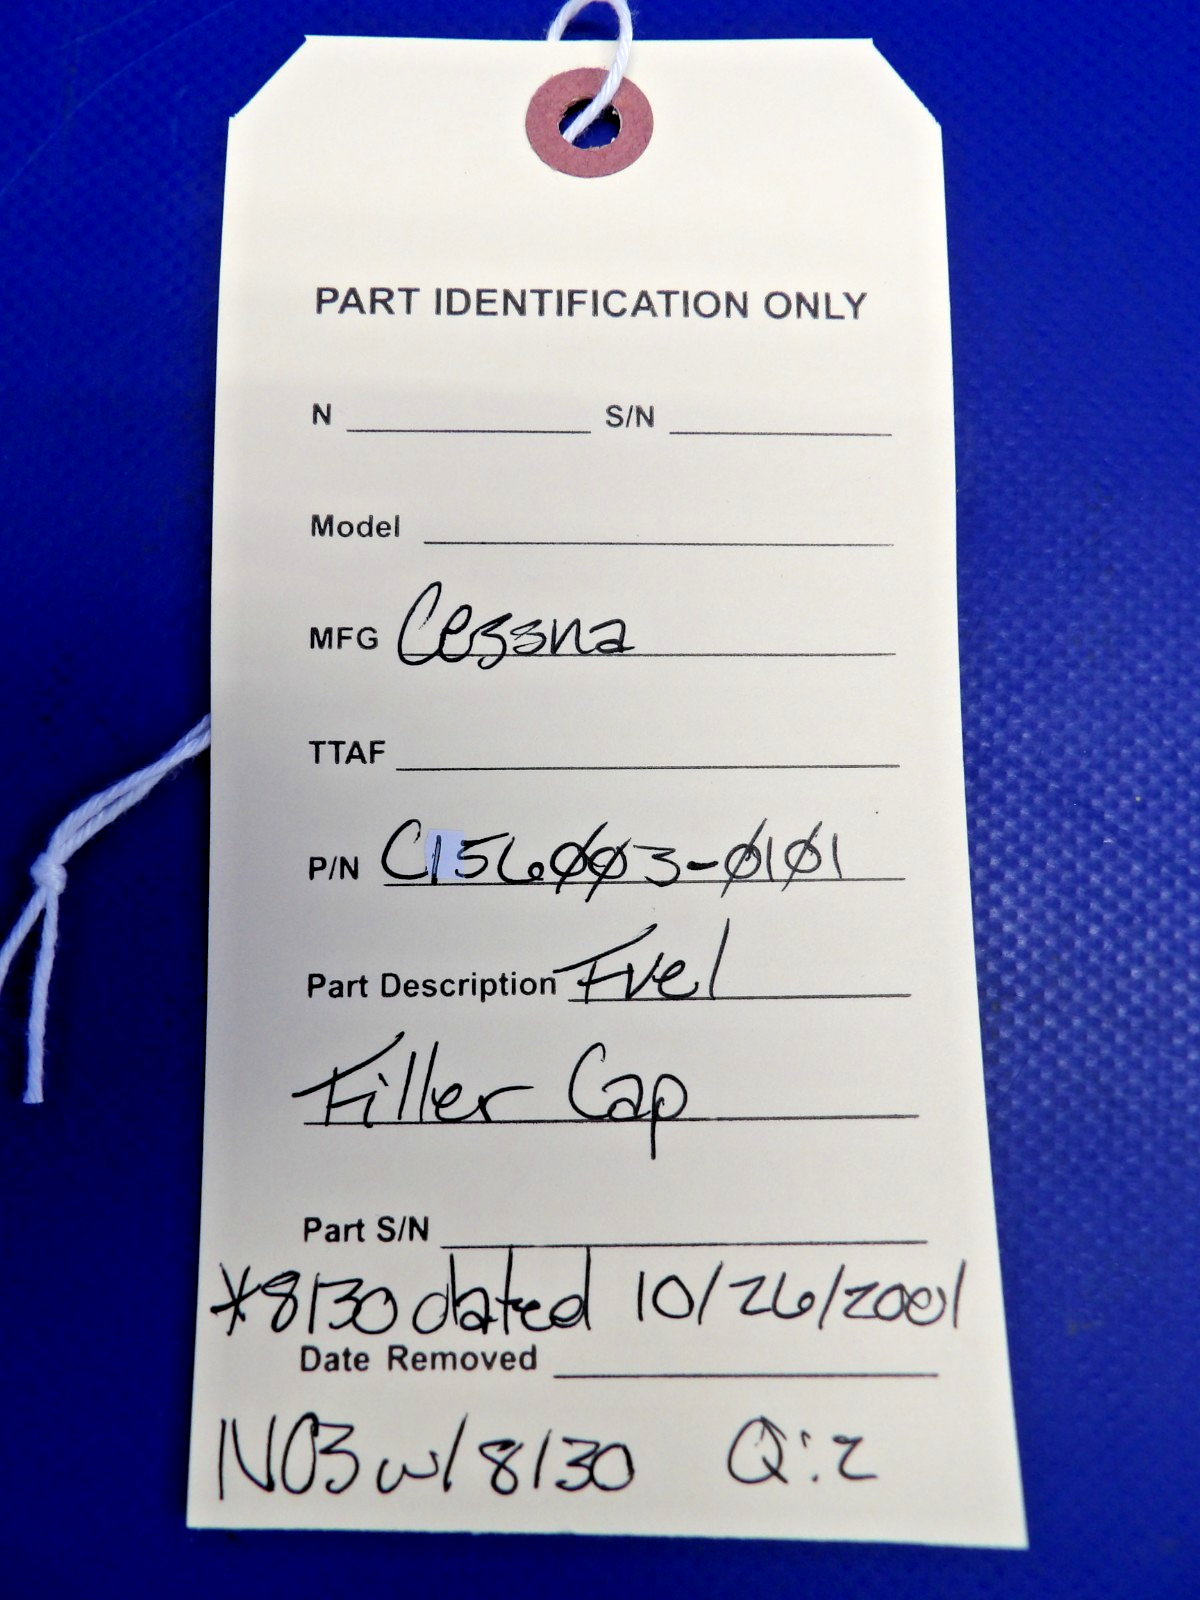 PART IDENTIFICATION ONLY
N S/N
Model
MFG Cessna
TTAF
P/N C156003-0101
Part Description Fuel
Filler Cap
Part S/N
*8130 dated 10/26/2001
Date Removed
NO3 w/ 8130 Q:2